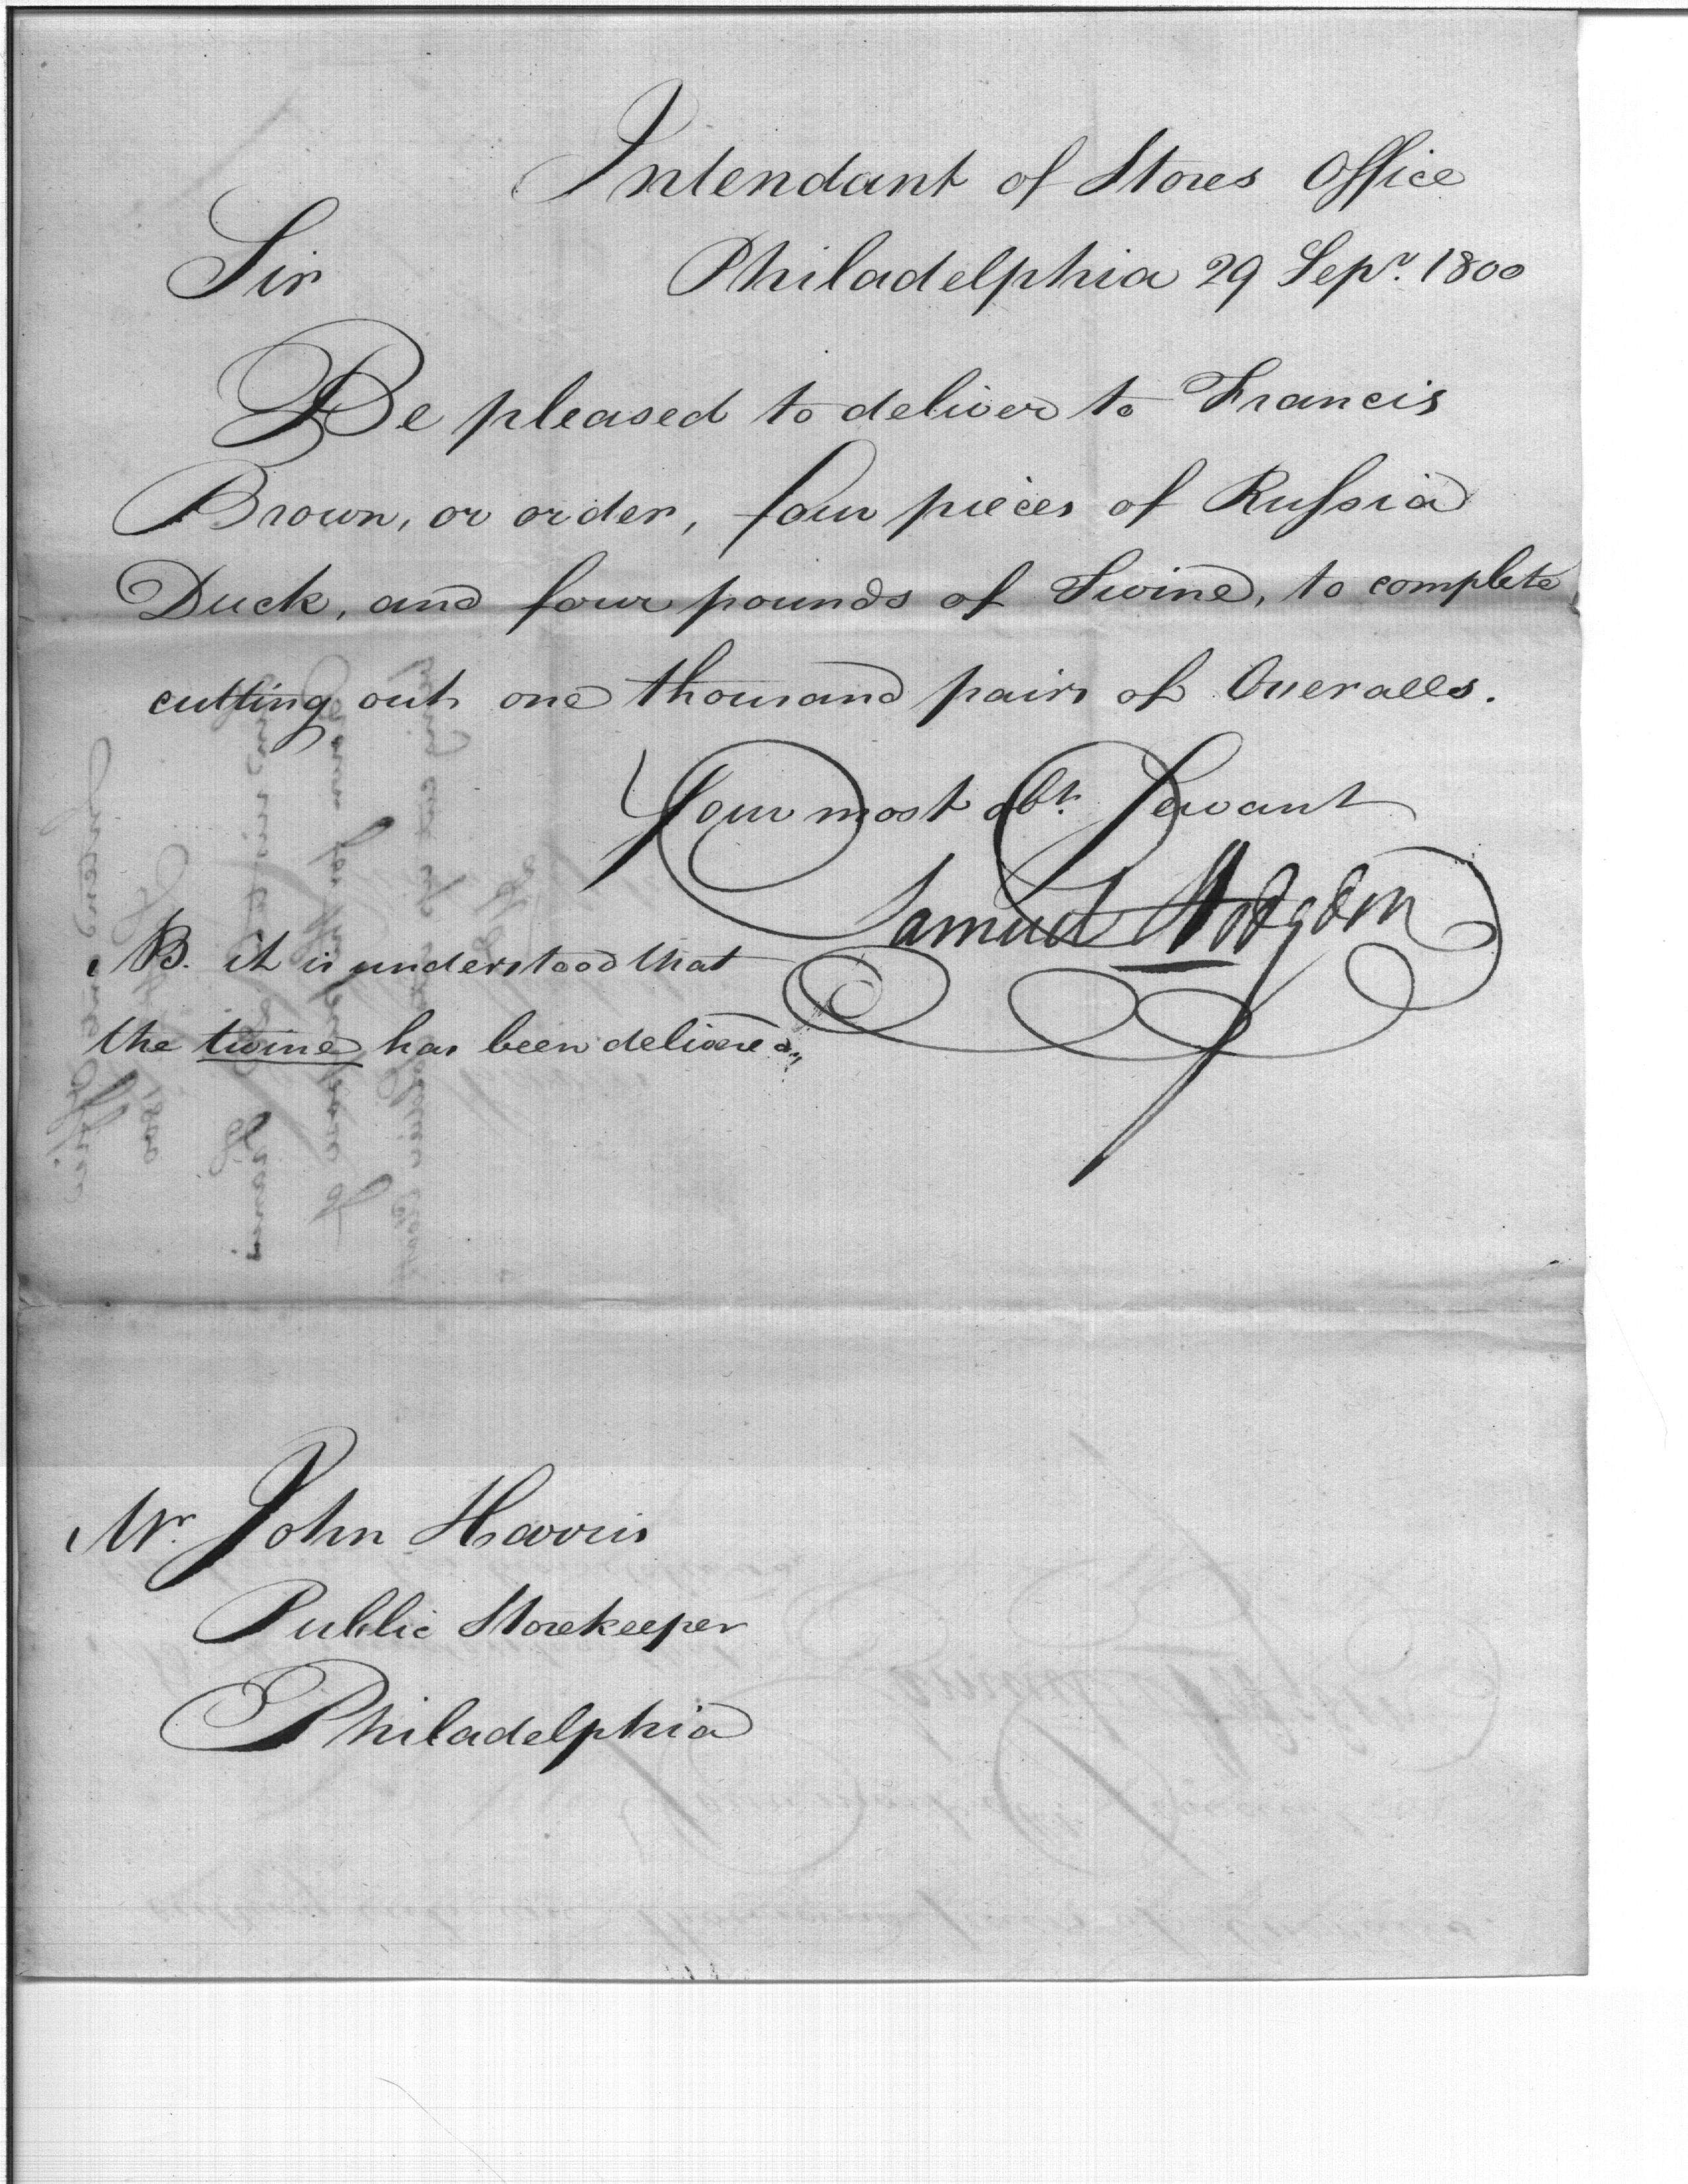 Intendant of Stores Office
Sir Philadelphia 29 Sepr. 1800
Be pleased to deliver to Francis
Brown, or order, four pieces of Russia
Duck, and four pounds of Twine, to complete
cutting out one thousand pairs of Overalls.
Your most obt. Servant
Samuel Hodgdon
NB. it is understood that
the twine has been delivered
Mr. John Harris
Public Storekeeper
Philadelphia